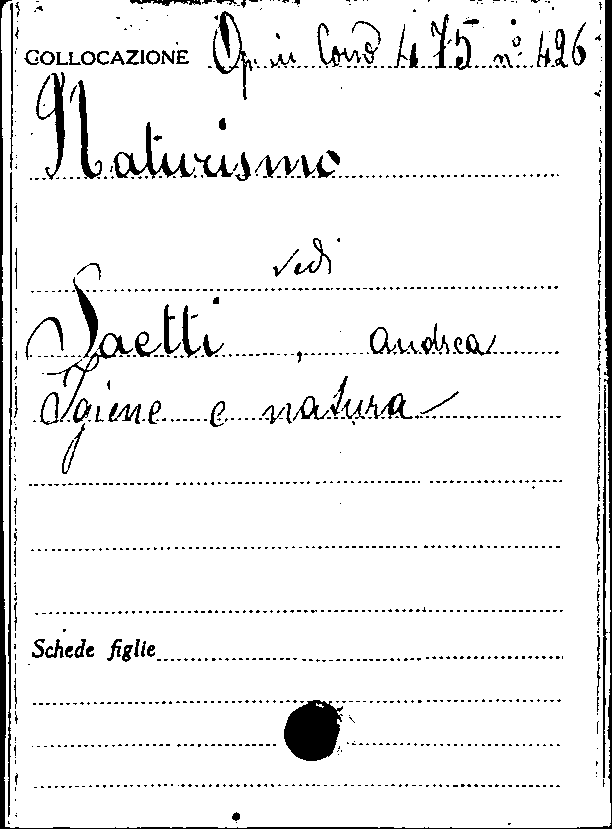 COLLOCAZIONE Op. in Cons 475 n° 426
Naturismo
vedi
Saetti, Andrea
Igiene e natura
Schede figlie